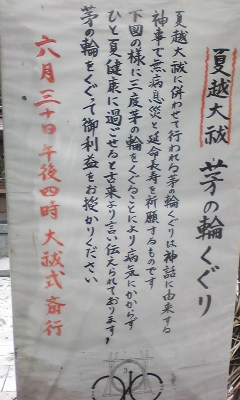 夏越大祓
茅の輪くぐり
夏越大祓に併わせて行われる茅の輪くぐりは神話に由来する
神事で無病息災と延命長寿を祈願するものです
下図の様に三度茅の輪をくぐることにより病気にかからず
ひと夏健康に過ごせると古来より言い伝えられております!
茅の輪をくぐて御利益をお授かりください
六月三十日午後四時 大祓式斎行